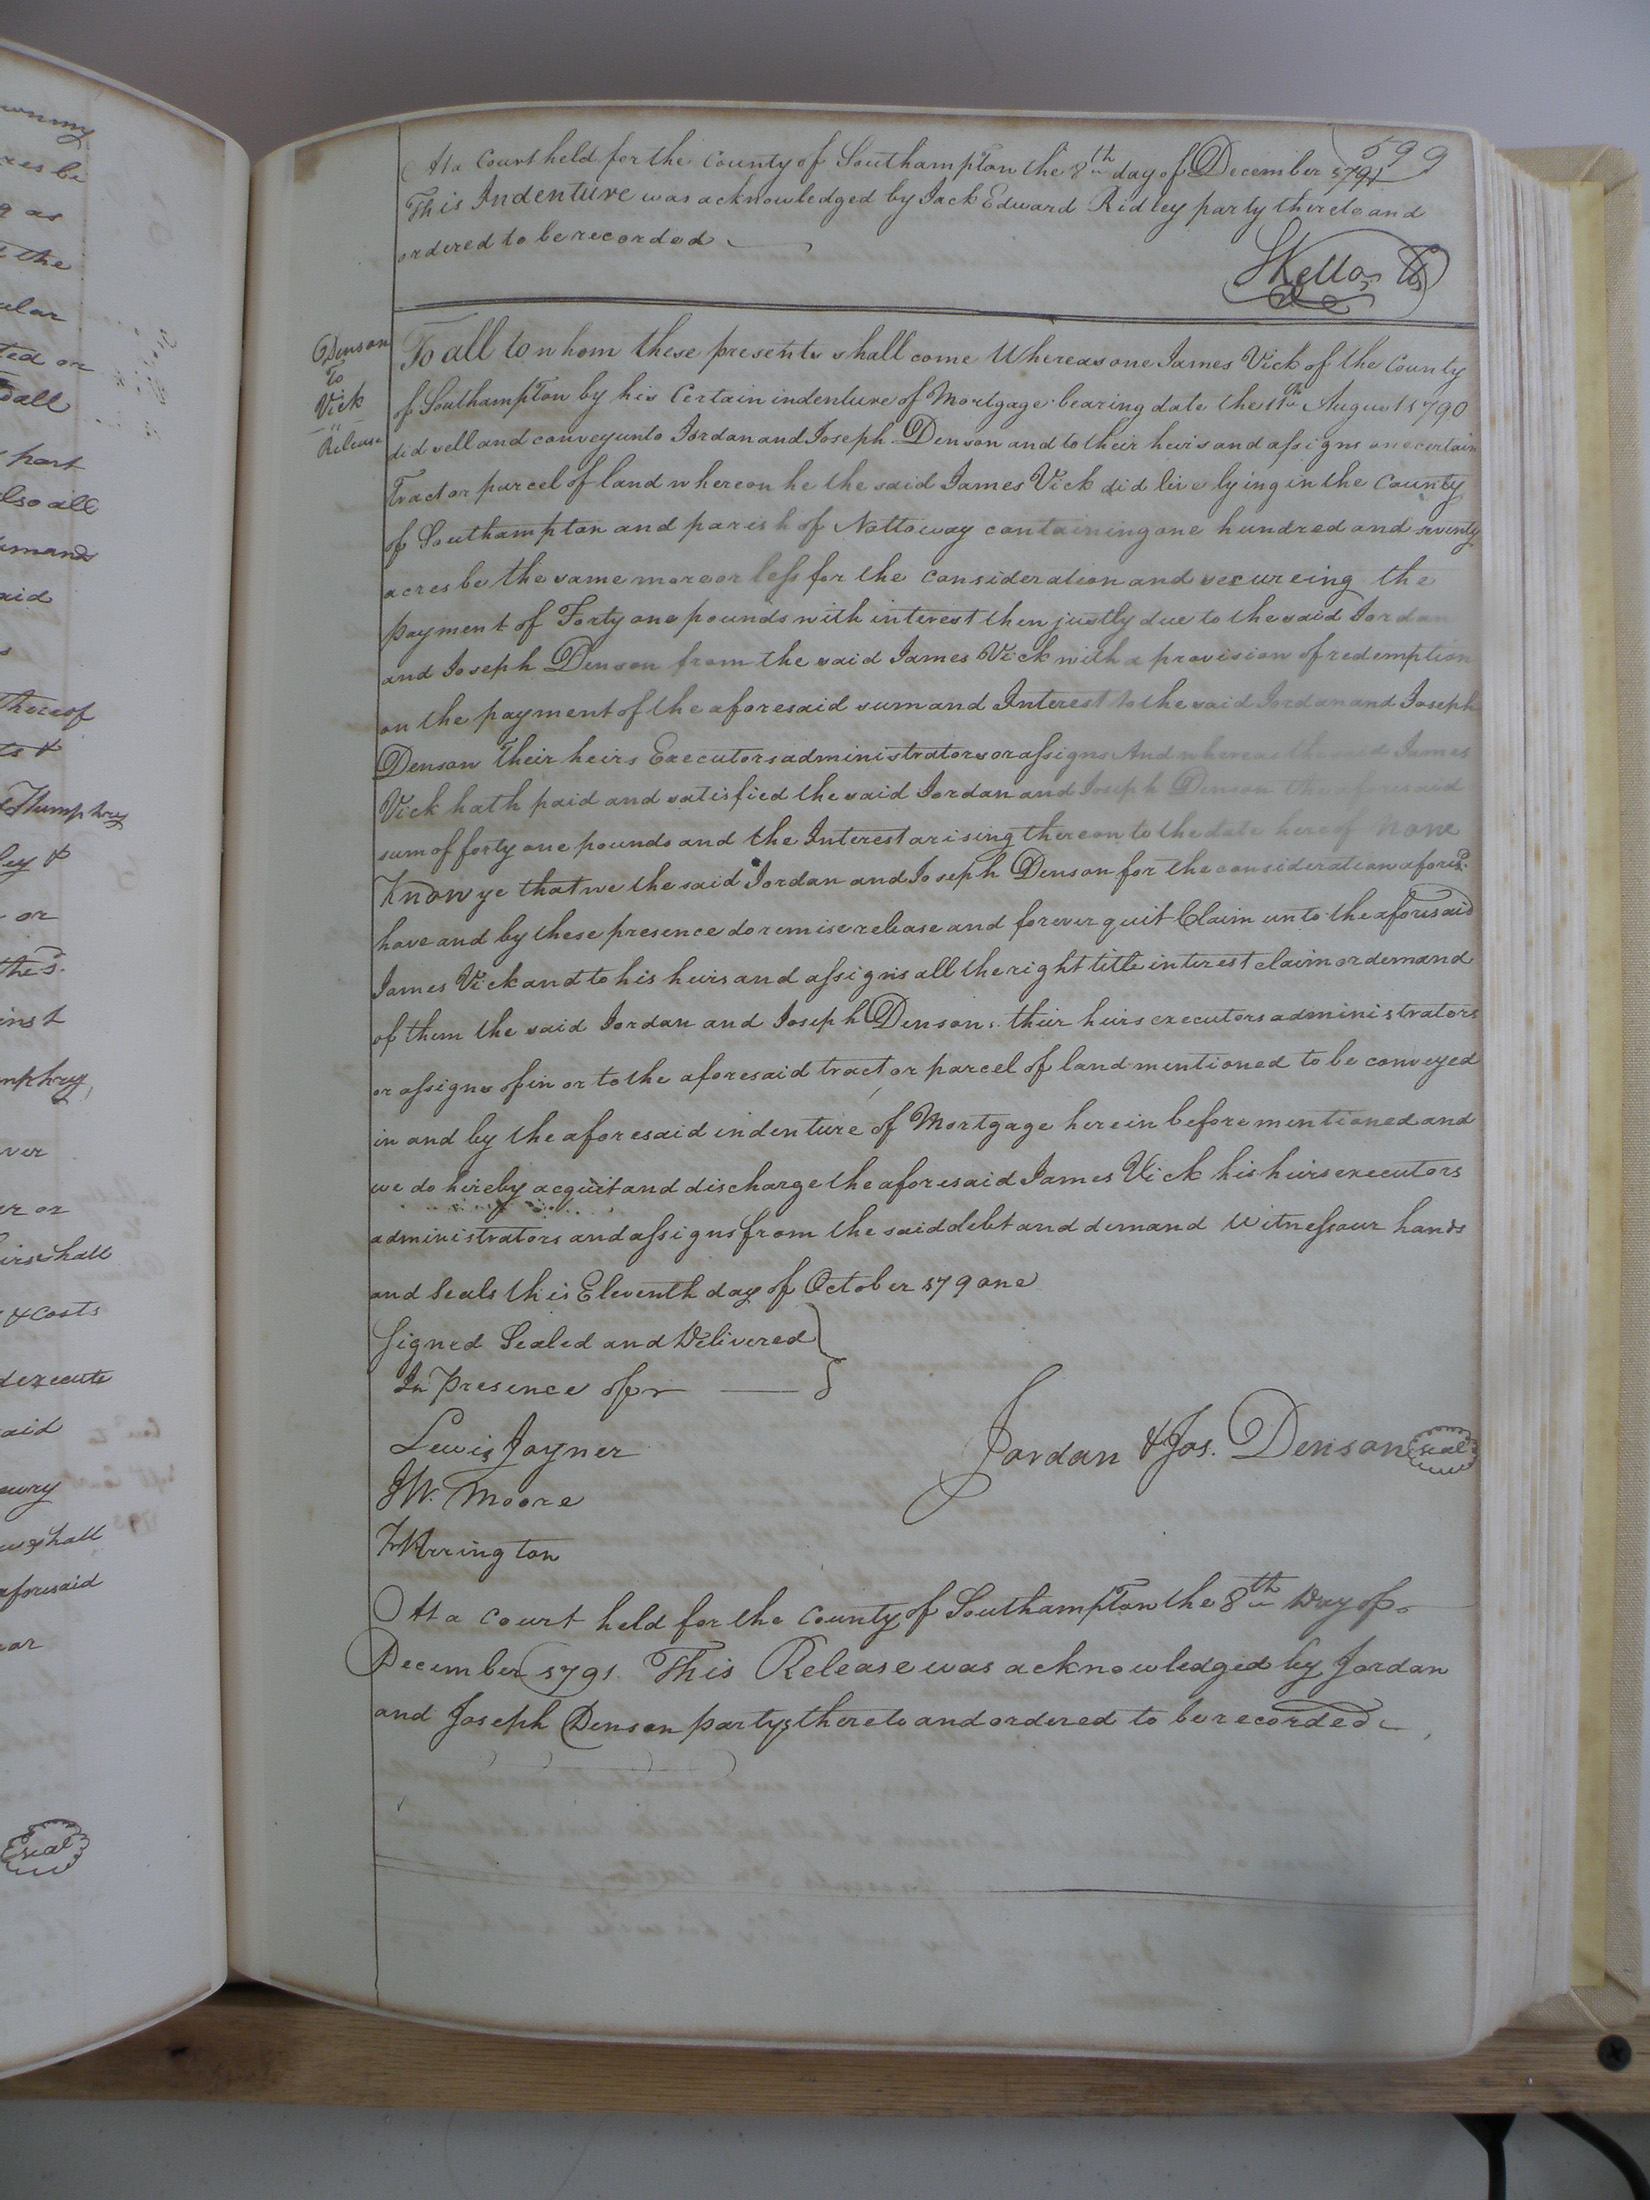 599
At a Court held for the County of Southampton the 8th day of December 1791
This Indenture was acknowledged by Jack Edward Ridley party thereto and
ordered to be recorded
Denson
To
Vick
Release
To all to whom these presents shall come Whereas one James Vick of the County
of Southampton by his Certain indenture of Mortgage bearing date the 11th August 1790
did sell and convey unto Jordan and Joseph Denson and to their heirs and assigns one certain
Tract or parcel of land whereon he the said James Vick did live lying in the County
of Southampton and parish of Nottoway containing one hundred and
acres be the same more or less for the consideration and secureing the
payment of Forty one pounds with interest then justly due to the said Jordan
and Joseph Denson from the said James Vick with a provision of redemption
on the payment of the aforesaid sum and Interest to the said Jordan and Joseph
Denson Their heirs Executors administrators or assigns And whereas the said James
Vick hath paid and satisfied the said Jordan and Joseph Denson the aforesaid
sum of forty one pounds and the Interest arising thereon to the date hereof None
Know ye that we the said Jordan and Joseph Denson for the consideration aforesd.
have and by these presence do remise release and forever quit Claim unto the aforesaid
James Vick and to his heirs and assigns all the right title interest claim or demand
of them the said Jordan and Joseph Denson, their heirs executors administrators
or assigns of in or to the aforesaid tract or parcel of land mentioned to be conveyed
in and by the aforesaid indenture of Mortgage herein before mentioned and
we do hereby acquit and discharge the aforesaid James Vick his heirs executors
administrators and assigns from the said debt and demand Witness our hands
and Seals this Eleventh day of October 179 one
Signed Sealed and Delivered
In Presence of
Lewis Joyner
Jordan & Jos. Denson seal
JW. Moore
Arrington
At a Court held for the County of Southampton the 8th Day of
December 1791. This Release was acknowledged by Jordan
and Joseph Denson partys thereto and ordered to be recorded